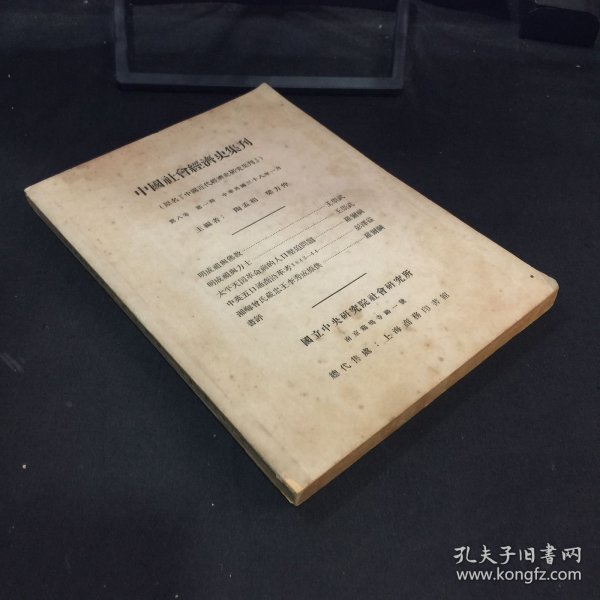 中國社會經濟史集刊
(原名『中國近代經濟史研究集刊』)
第八卷 第一期 中華民國三十八年一月
主編者: 陶孟和 梁方仲
明成祖與佛教……王崇武
明成祖與方士……王崇武
太平天國革命前的人口壓迫問題……羅爾綱
中英五口通商沿革考1842-44……彭澤益
湘軍曾氏藏忠王李秀成原供……羅爾綱
書評
國立中央研究院社會研究所
南京雞鳴寺路一號
總代售處:上海商務印書館
孔夫子旧书网
www.kongfz.com